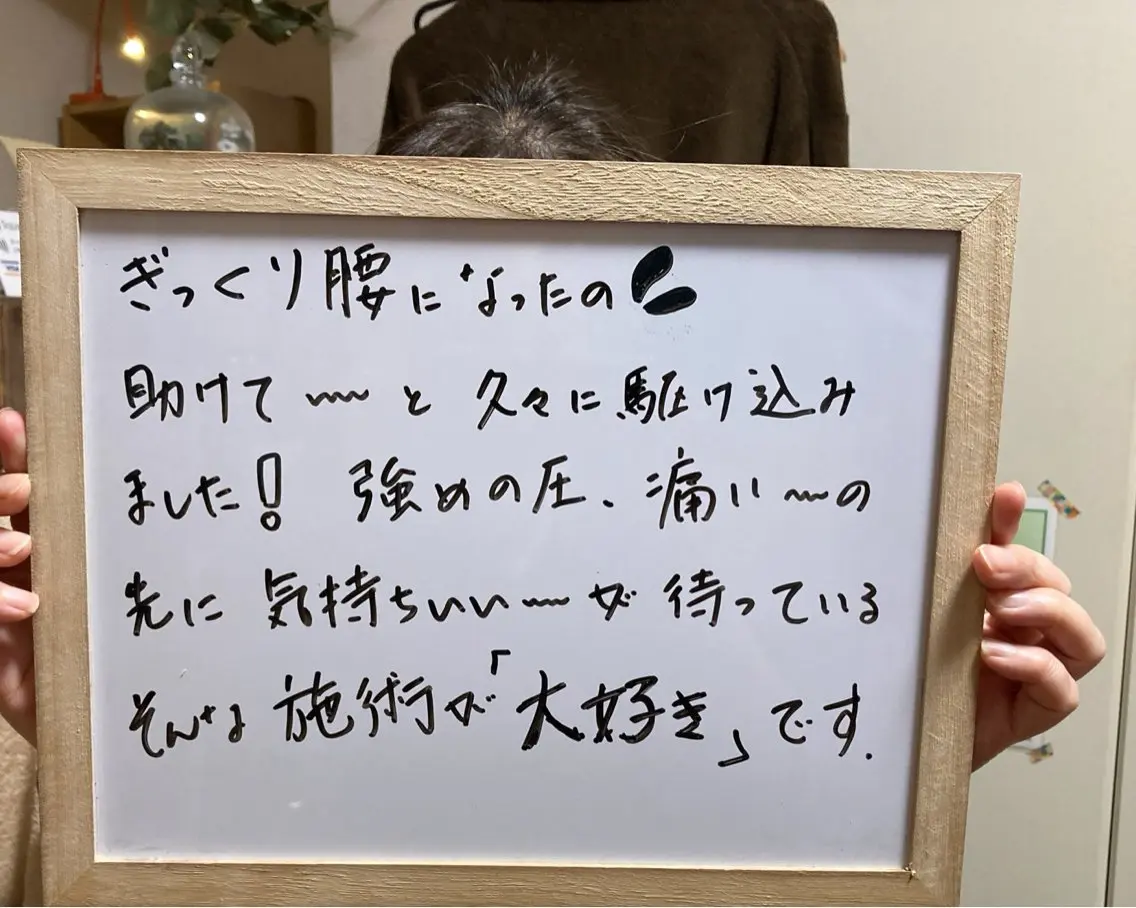 ぎっくり腰になったの
助けて〜〜と久々に駆け込み
ました! 強めの圧、痛い〜の
先に気持ちいい〜が待っている
そんな施術が「大好き」です.
VISA